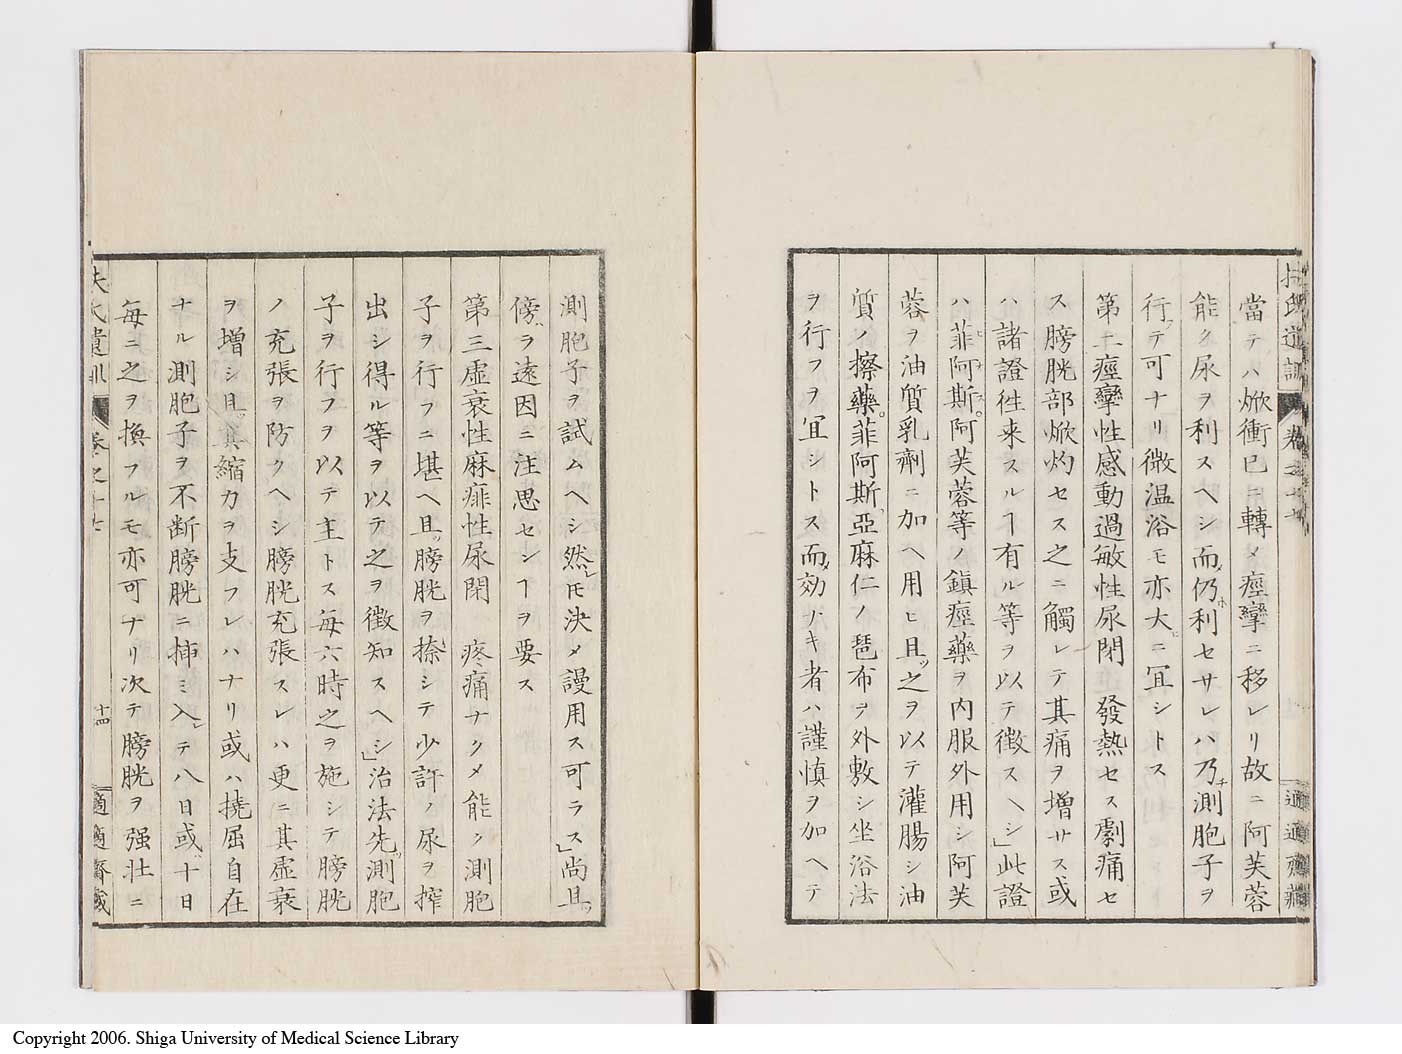 當テハ焮衝已ニ轉メ痙攣ニ移レリ故ニ阿芙蓉
能ク尿ヲ利スヘシ而メ仍ホ利セサレハ乃チ測胞子ヲ
行テ可ナリ微温浴モ亦大ニ宜シトス
第二痙攣性感動過敏性尿閉 發熱セス劇痛セ
ス膀胱部焮灼セス之ニ觸レテ其痛ヲ増サス或
ハ諸證徃来スルヿ有ル等ヲ以テ徴スヘシ」此證
ハ菲阿斯。阿芙蓉等ノ鎮痙藥ヲ内服外用シ阿芙
蓉ヲ油質乳劑ニ加ヘ用ヒ且ツ之ヲ以テ灌腸シ油
質ノ擦藥。菲阿斯亞麻仁ノ琶布ヲ外敷シ坐浴法
ヲ行フヲ宜シトス而メ効ナキ者ハ謹慎ヲ加ヘテ
測胞子ヲ試ムヘシ然レ𪜈決メ謾用ス可ラス」尚且ツ
傍ラ遠因ニ注思センヿヲ要ス
第三虚衰性麻痱性尿閉 疼痛ナクメ能ク測胞
子ヲ行フニ堪ヘ且ツ膀胱ヲ捺シテ少許ノ尿ヲ搾
出シ得ル等ヲ以テ之ヲ徴知スヘシ」治法先ツ測胞
子ヲ行フヲ以テ主トス毎六時之ヲ施シテ膀胱
ノ充張ヲ防クヘシ膀胱充張スレハ更ニ其虚衰
ヲ増シ且ツ其縮力ヲ支フレハナリ或ハ撓屈自在
ナル測胞子ヲ不断膀胱ニ挿ミ入レテ八日或ハ十日
毎ニ之ヲ換フルモ亦可ナリ次テ膀胱ヲ强壮ニ
扶氏遺訓 卷之十七 十四 適適齋藏
Copyright 2006. Shiga University of Medical Science Library